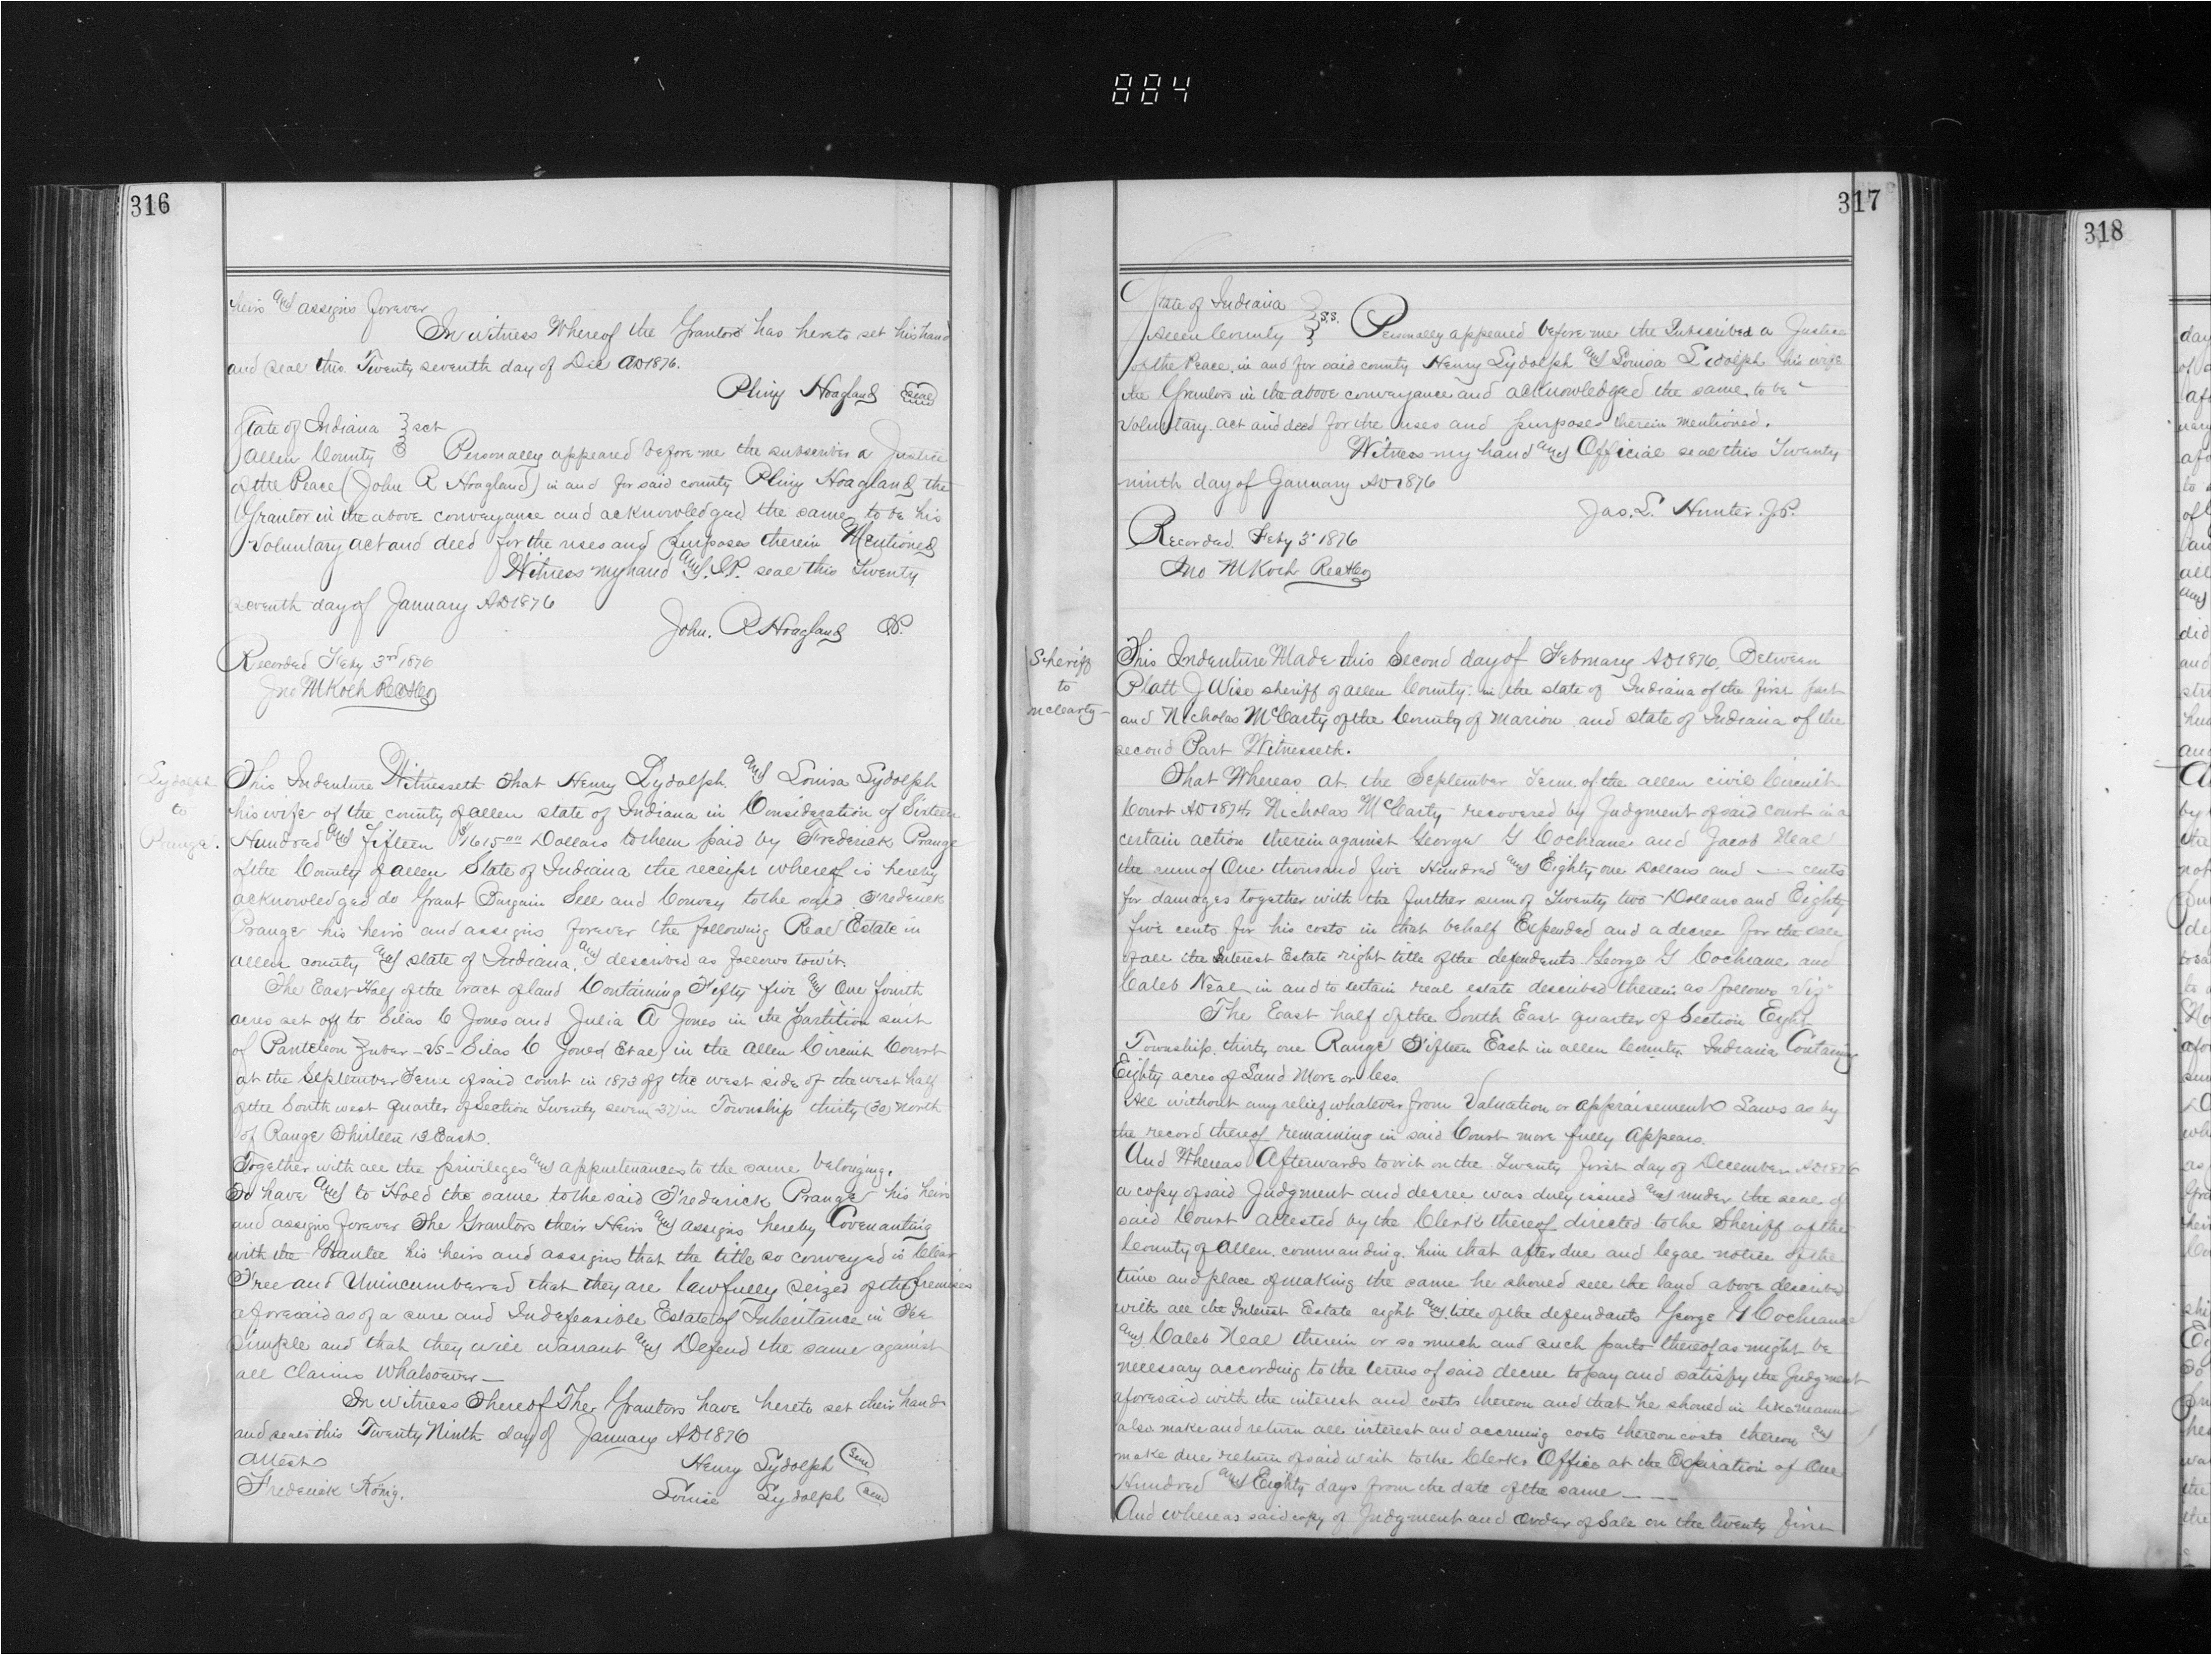 884
316
heirs and assigns forever
In witness Whereof the Grantor has hereto set his hand
and seal this Twenty seventh day of Dec AD 1876.
Pliny Hoagland Seal
State of Indiana } sct
Allen County } Personally appeared before me the subscriber a Justice
of the Peace (John R Hoagland) in and for said county Pliny Hoagland the
Grantor in the above conveyance and acknowledged the same to be his
voluntary act and deed for the uses and purposes therein Mentioned
Witness my hand and J.P. seal this Twenty
seventh day of January AD 1876
John. R Hoagland JP.
Recorded Feby 3rd 1876
Jno M Koch RecACo
Lydolph
to
Prange.
This Indenture Witnesseth That Henry Lydolph and Louisa Lydolph
his wife of the county of allen state of Indiana in Consideration of Sixteen
Hundred and Fifteen $1615.00 Dollars to them paid by Frederick Prange
of the County of allen State of Indiana the receipt whereof is hereby
acknowledged do Grant Bargain Sell and Convey to the said Frederick
Prange his heirs and assigns forever the following Real Estate in
allen county and state of Indiana, and described as follows towit.
The East Half of the tract of land Containing Fifty five and One fourth
acres set off to Silas C Jones and Julia A Jones in the partition suit
of Panteleon Zuber -vs- Silas C Jones Et al in the Allen Circuit Court
at the September Term of said court in 1873 off the west side of the west half
of the South west quarter of Section Twenty seven (27) in Township thirty (30) North
of Range Thirteen 13 East.
Together with all the privileges and appurtenances to the same belonging.
To have and to Hold the same to the said Frederick Prange his heirs
and assigns forever The Grantors their Heirs and assigns hereby Covenanting
with the Grantee his heirs and assigns that the title so conveyed is Clear
Free and Unincumbered that they are lawfully seized of the premises
aforesaid as of a sure and Indefeasible Estate of Inheritance in Fee
Simple and that they will warrant and Defend the same against
all claims Whatsoever —
In witness Whereof The Grantors have hereto set their hands
and seals this Twenty Ninth day of January AD 1876
Attest
Henry Lydolph Seal
Frederick König.
Louise Lydolph Seal
317
State of Indiana }
Allen County } s.s. Personally appeared before me the Subscriber a Justice
of the Peace, in and for said county Henry Lydolph and Louisa Lidolph his wife
the Grantors in the above conveyance and acknowledged the same to be
voluntary act and deed for the uses and purposes therein mentioned.
Witness my hand and Official seal this Twenty
ninth day of January AD 1876
Jas. L. Hunter. J.P.
Recorded Feby 3d 1876
Jno M Koch RecACo
Sheriff
to
McCarty -
This Indenture Made this Second day of February AD 1876, Between
Platt J Wise sheriff of allen County in the state of Indiana of the first part
and Nicholas McCarty of the County of Marion and state of Indiana of the
second Part Witnesseth.
That Whereas at the September Term of the allen civil Circuit
Court AD 1874, Nicholas McCarty recovered by Judgment of said court in a
certain action therein against George G Cochrane and Jacob Neal
the sum of One thousand five Hundred and Eighty one Dollars and — cents
for damages together with the further sum of Twenty two Dollars and Eighty
five cents for his costs in that behalf Expended and a decree for the sale
of all the Interest Estate right title of the defendents George G Cochrane and
Caleb Neal in and to certain real estate described therein as follows viz"
The East half of the South East quarter of Section Eight
Township thirty one Range Fifteen East in allen County Indiana Containing
Eighty acres of Land More or less.
All without any relief whatever from Valuation or appraisement Laws as by
the record thereof remaining in said Court more fully Appears.
And Whereas Afterwards towit on the Twenty first day of December AD 1876
a copy of said Judgment and decree was duly issued and under the seal of
said Court attested by the Clerk thereof directed to the Sheriff of the
County of Allen. commanding him that after due and legal notice of the
time and place of making the same he should sell the land above described
with all the Interest Estate right and title of the defendants George G Cochrane
and Caleb Neal therein or so much and such parts thereof as might be
necessary according to the terms of said decree to pay and satisfy the Judgment
aforesaid with the interest and costs thereon and that he should in like manner
also make and return all interest and accruing costs thereon costs thereon and
make due return of said writ to the Clerks Office at the Expiration of One
Hundred and Eighty days from the date of the same — —
And whereas said copy of Judgment and Order of Sale on the twenty first
318